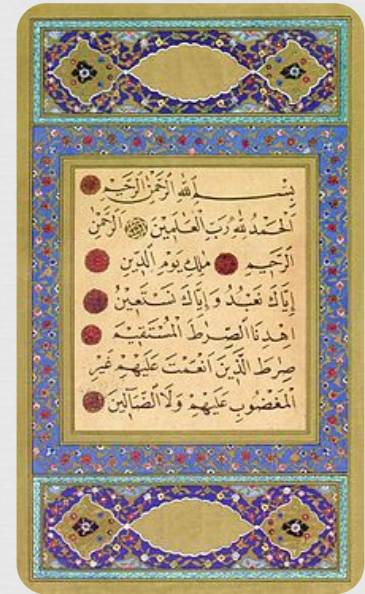 بِسْمِ اللهِ الرَّحْمٰنِ الرَّحِيمِ
اَلْحَمْدُ لِلّٰهِ رَبِّ الْعَالَمِينَ الرَّحْمٰنِ
الرَّحِيمِ مٰلِكِ يَوْمِ الدِّينِ
اِيَّاكَ نَعْبُدُ وَاِيَّاكَ نَسْتَعِينُ
اِهْدِنَا الصِّرَاطَ الْمُسْتَقِيمَ
صِرَاطَ الَّذِينَ اَنْعَمْتَ عَلَيْهِمْ غَيْرِ
الْمَغْضُوبِ عَلَيْهِمْ وَلَا الضَّٓالِّينَ